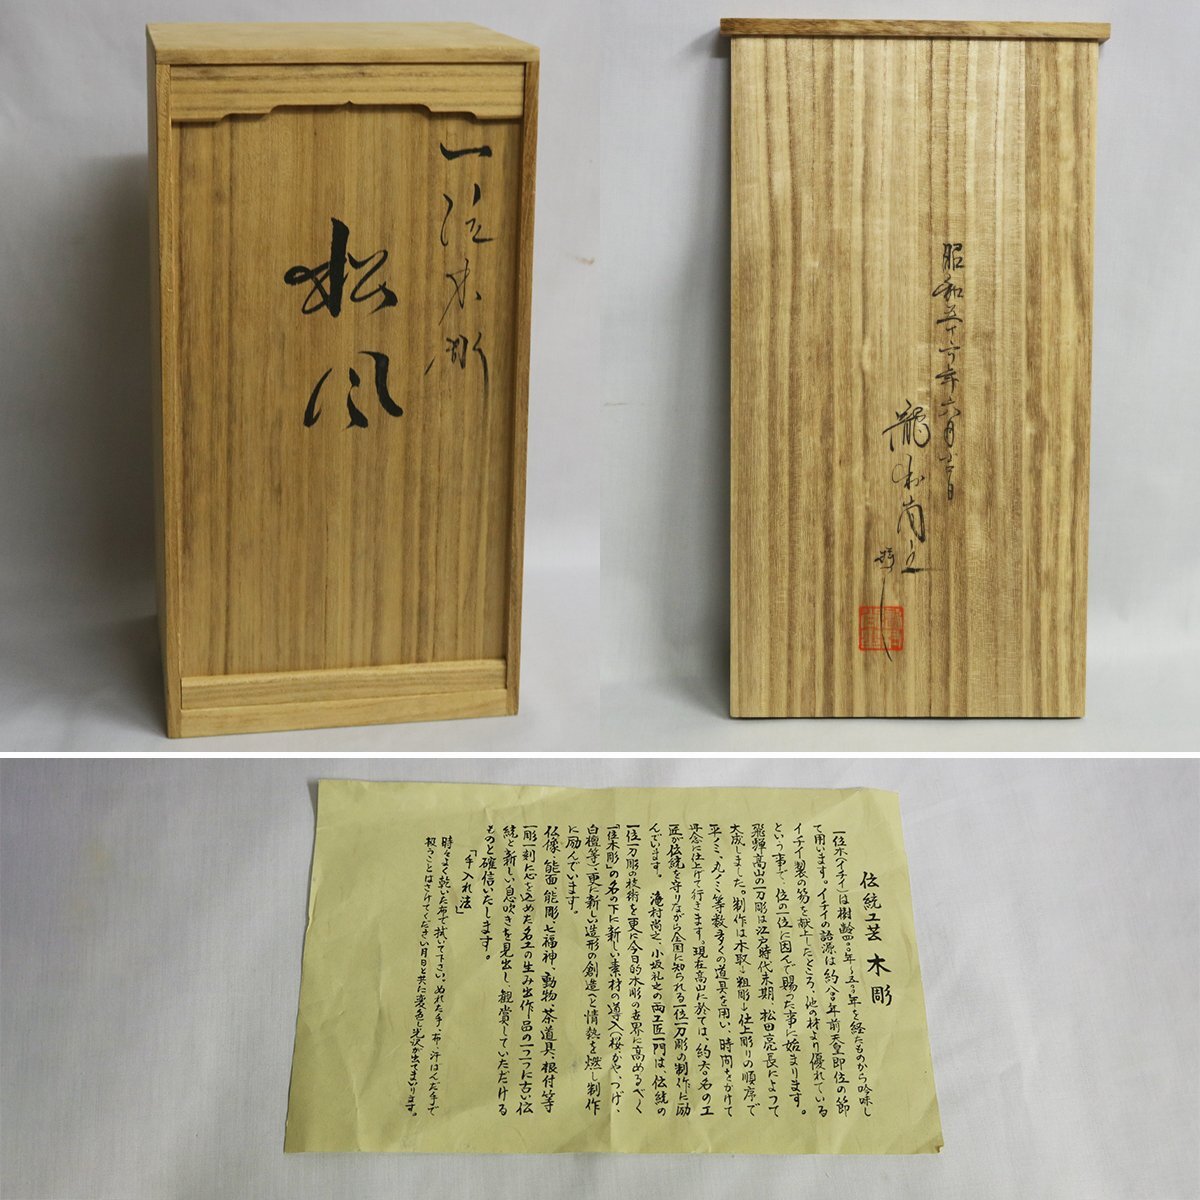 一位木彫
松風
昭和五十六年六月吉日
龍村尚之
伝統工芸 木彫
一位木(イチイ)は樹齢四〇〇年〜五〇〇年を経たものから吟味し
て用います。イチイの語源は約八〇〇年前天皇即位の節
イチイ製の笏を献上したところ、他の材より優れている
という事で位の一位に因んで賜った事に始まります。
飛騨高山の一刀彫は江戸時代末期、松田亮長によって
大成しました。制作は木取り、粗彫り、仕上彫りの順序で
平ノミ、丸ノミ等数多くの道具を用い、時間をかけて
丹念に仕上げて行きます。現在高山に於ては、約六〇名の工
匠が伝統を守りながら全国に知られる一位一刀彫の制作に励
んでいます。 滝村尚之、小坂礼之の両工匠一門は、伝統の
一位一刀彫の技術を更に今日的木彫の世界に高めるべく
『一位木彫』の名の下に新しい素材の導入(桜、かや、つげ、
白檀等)、更に新しい造形の創造へと情熱を燃し制作
に励んでいます。
仏像、能面、能彫、七福神、動物、茶道具、根付等
一彫一刻に心を込めた名工の生み出す作品の一つ一つに古い伝
統と新しい息吹きを見出し、観賞していただける
ものと確信いたします。
「手入れ法」
時々よく乾いた布で拭いて下さい。ぬれた手・布・汗ばんだ手で
扱うことはさけてください。月日と共に変色し光沢が出てまいります。